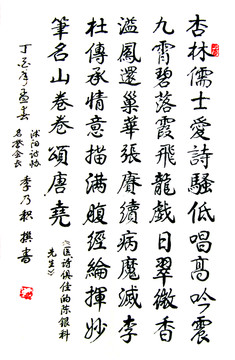 杏林儒士愛詩騷低唱高吟震
九霄碧落霞飛龍戲日翠微香
溢鳳還巢華張賡續病魔滅李
杜傳承情意描滿腹經綸揮妙
筆名山卷卷頌唐堯
《医诗俱佳的陈银科
先生》
丁酉年孟春
沭阳诗协
名誉会长
季乃积 撰書